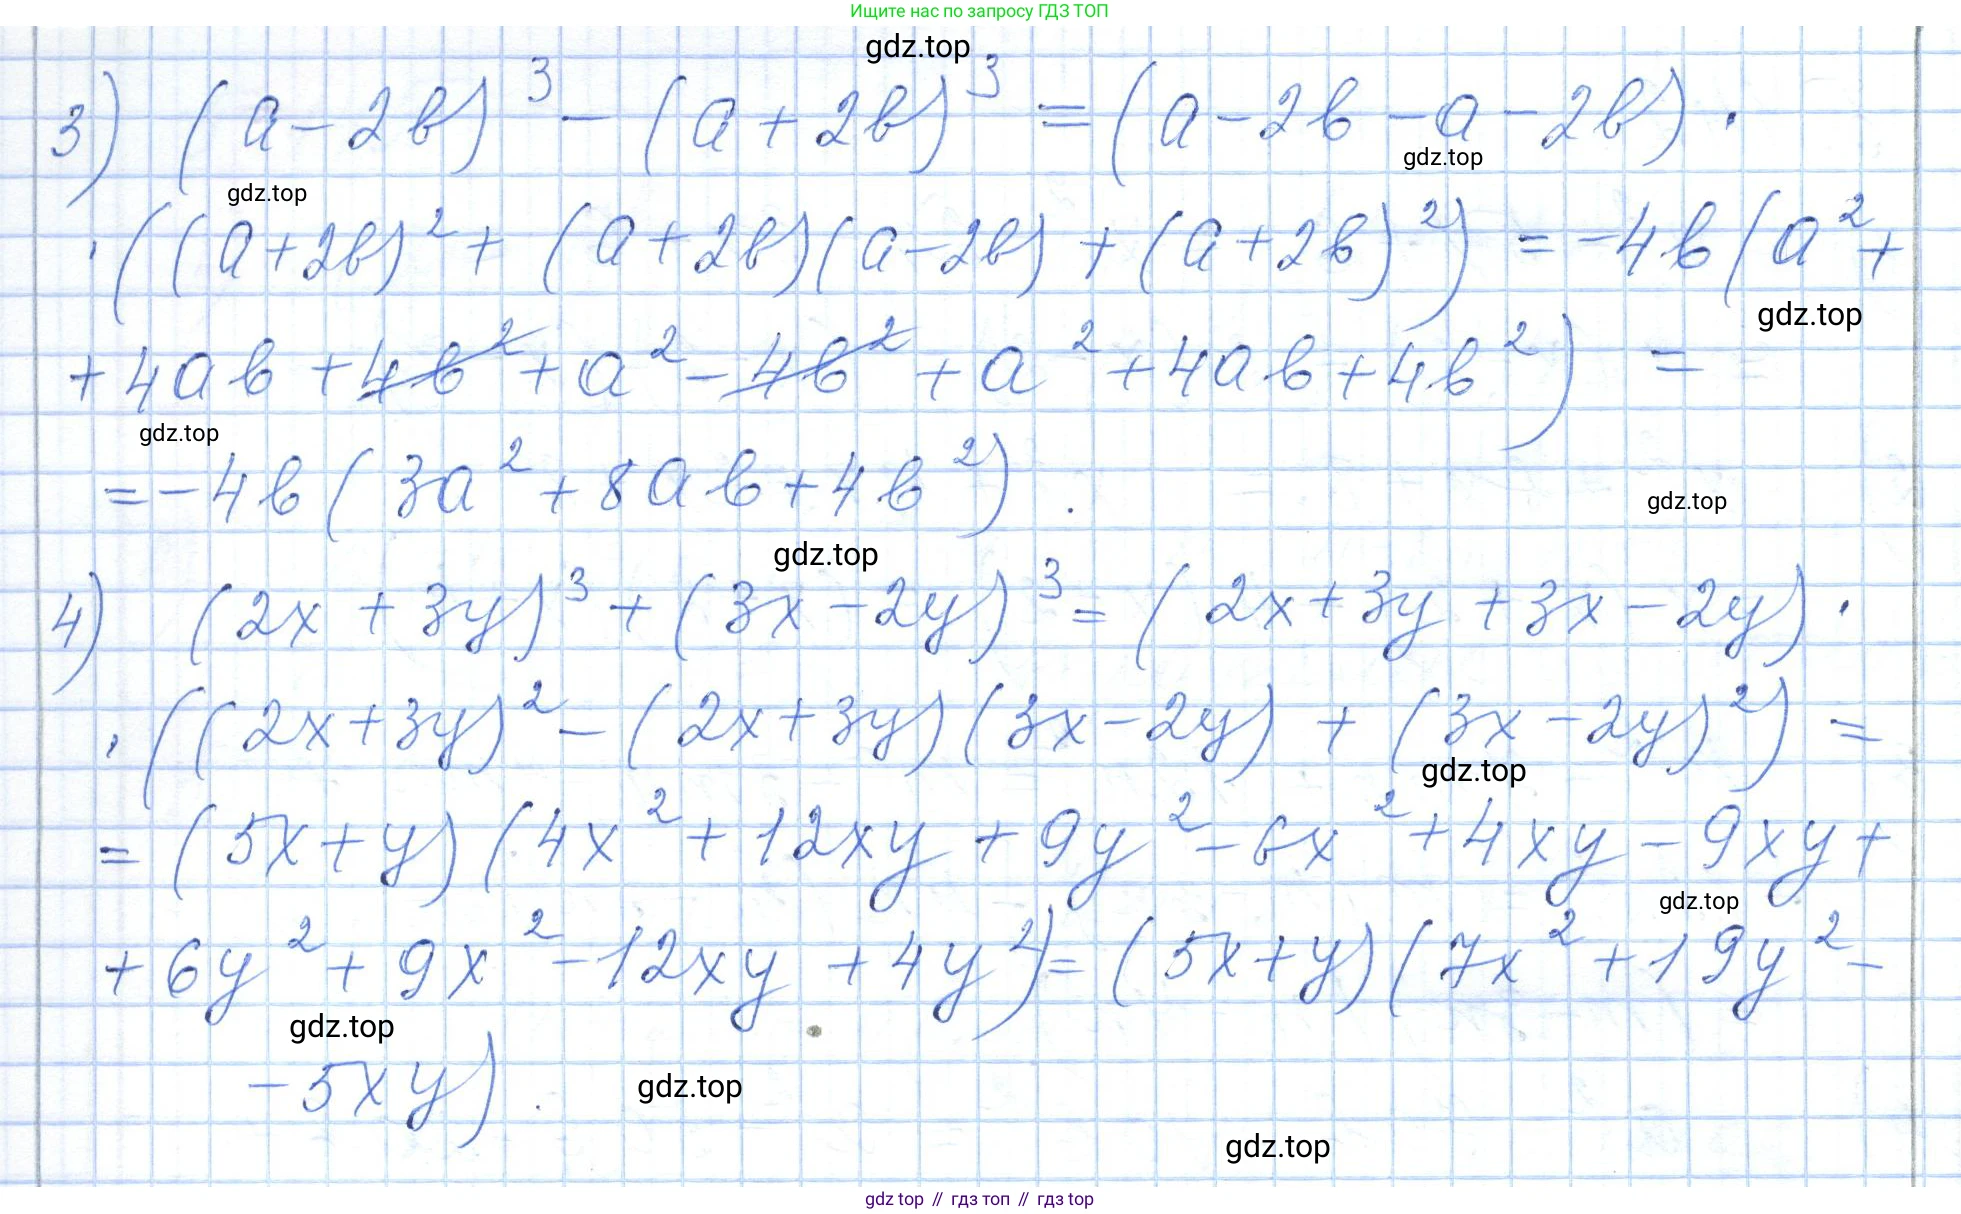 Ищите нас по запросу ГДЗ ТОП
gdz.top
3) (a - 2b)³ - (a + 2b)³ = (a - 2b - a - 2b) ·
gdz.top
gdz.top
· ((a + 2b)² + (a + 2b)(a - 2b) + (a + 2b)²) = -4b(a² +
gdz.top
+ 4ab + 4b² + a² - 4b² + a² + 4ab + 4b²) =
gdz.top
= -4b(3a² + 8ab + 4b²).
gdz.top
gdz.top
4) (2x + 3y)³ + (3x - 2y)³ = (2x + 3y + 3x - 2y) ·
· ((2x + 3y)² - (2x + 3y)(3x - 2y) + (3x - 2y)²) =
gdz.top
= (5x + y)(4x² + 12xy + 9y² - 6x² + 4xy - 9xy +
gdz.top
+ 6y² + 9x² - 12xy + 4y²) = (5x + y)(7x² + 19y² -
gdz.top
- 5xy).
gdz.top
gdz.top
gdz top // гдз топ // гдз top